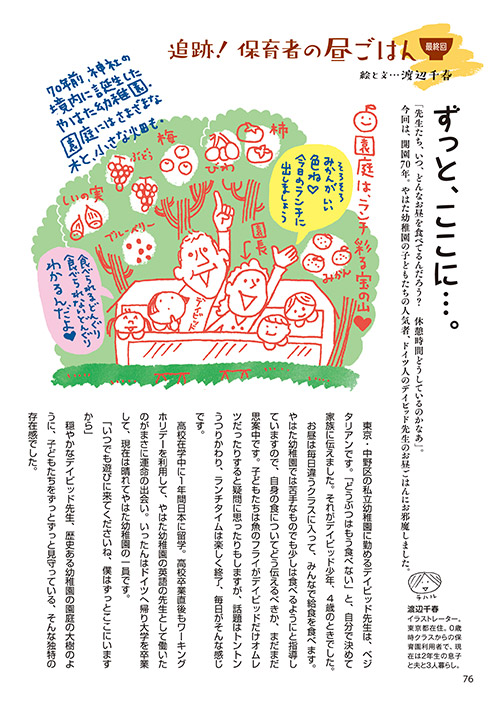 追跡！保育者の昼ごはん
最終回
絵と文…渡辺千春
ずっと、ここに…。
「先生たち、いつ、どんなお昼を食べてるんだろう？　休憩時間どうしているのかなぁ」。
今回は、開園70年。やはた幼稚園の子どもたちの人気者、ドイツ人のデイビッド先生のお昼ごはんにお邪魔しました。
70年前 神社の
境内に誕生した
やはた幼稚園。
園庭にはさまざまな
木と、小さな畑も。
園庭は、ランチ彩る宝の山
柿
びわ
梅
ぶどう
しいの実
ブルーベリー
みかん
そろそろ
みかんがいい
色ね
今日のランチに
出しましょう
園長
デイビッド
食べられるどんぐり
食べられないどんぐり
わかるんだよ
チハル
渡辺千春
イラストレーター。
東京都在住。0歳
時クラスからの保
育園利用者で、現
在は2年生の息子
と夫と3人暮らし。
東京・中野区の私立幼稚園に勤めるデイビッド先生は、ベジ
タリアンです。「どうぶつはもう食べない」と、自分で決めて
家族に伝えました。それがデイビッド少年、4歳のときでした。
お昼は毎日違うクラスに入って、みんなで給食を食べます。
やはた幼稚園では苦手なものでも少しは食べるようにと指導し
ていますので、自身の食についてどう伝えるべきか、まだまだ
思案中です。子どもたちは魚のフライがデイビッドだけオムレ
ツだったりすると疑問に思ったりもしますが、話題はトントン
うつりかわり、ランチタイムは楽しく終了、毎日がそんな感じ
です。
高校在学中に1年間日本に留学。高校卒業直後もワーキング
ホリデーを利用して、やはた幼稚園の英語の先生として働いた
のがまさに運命の出会い。いったんはドイツへ帰り大学を卒業
して、現在は晴れてやはた幼稚園の一員です。
「いつでも遊びに来てくださいね、僕はずっとここにいます
から」
穏やかなデイビッド先生、歴史ある幼稚園の園庭の大樹のよ
うに、子どもたちをずっとずっと見守っている、そんな独特の
存在感でした。
76